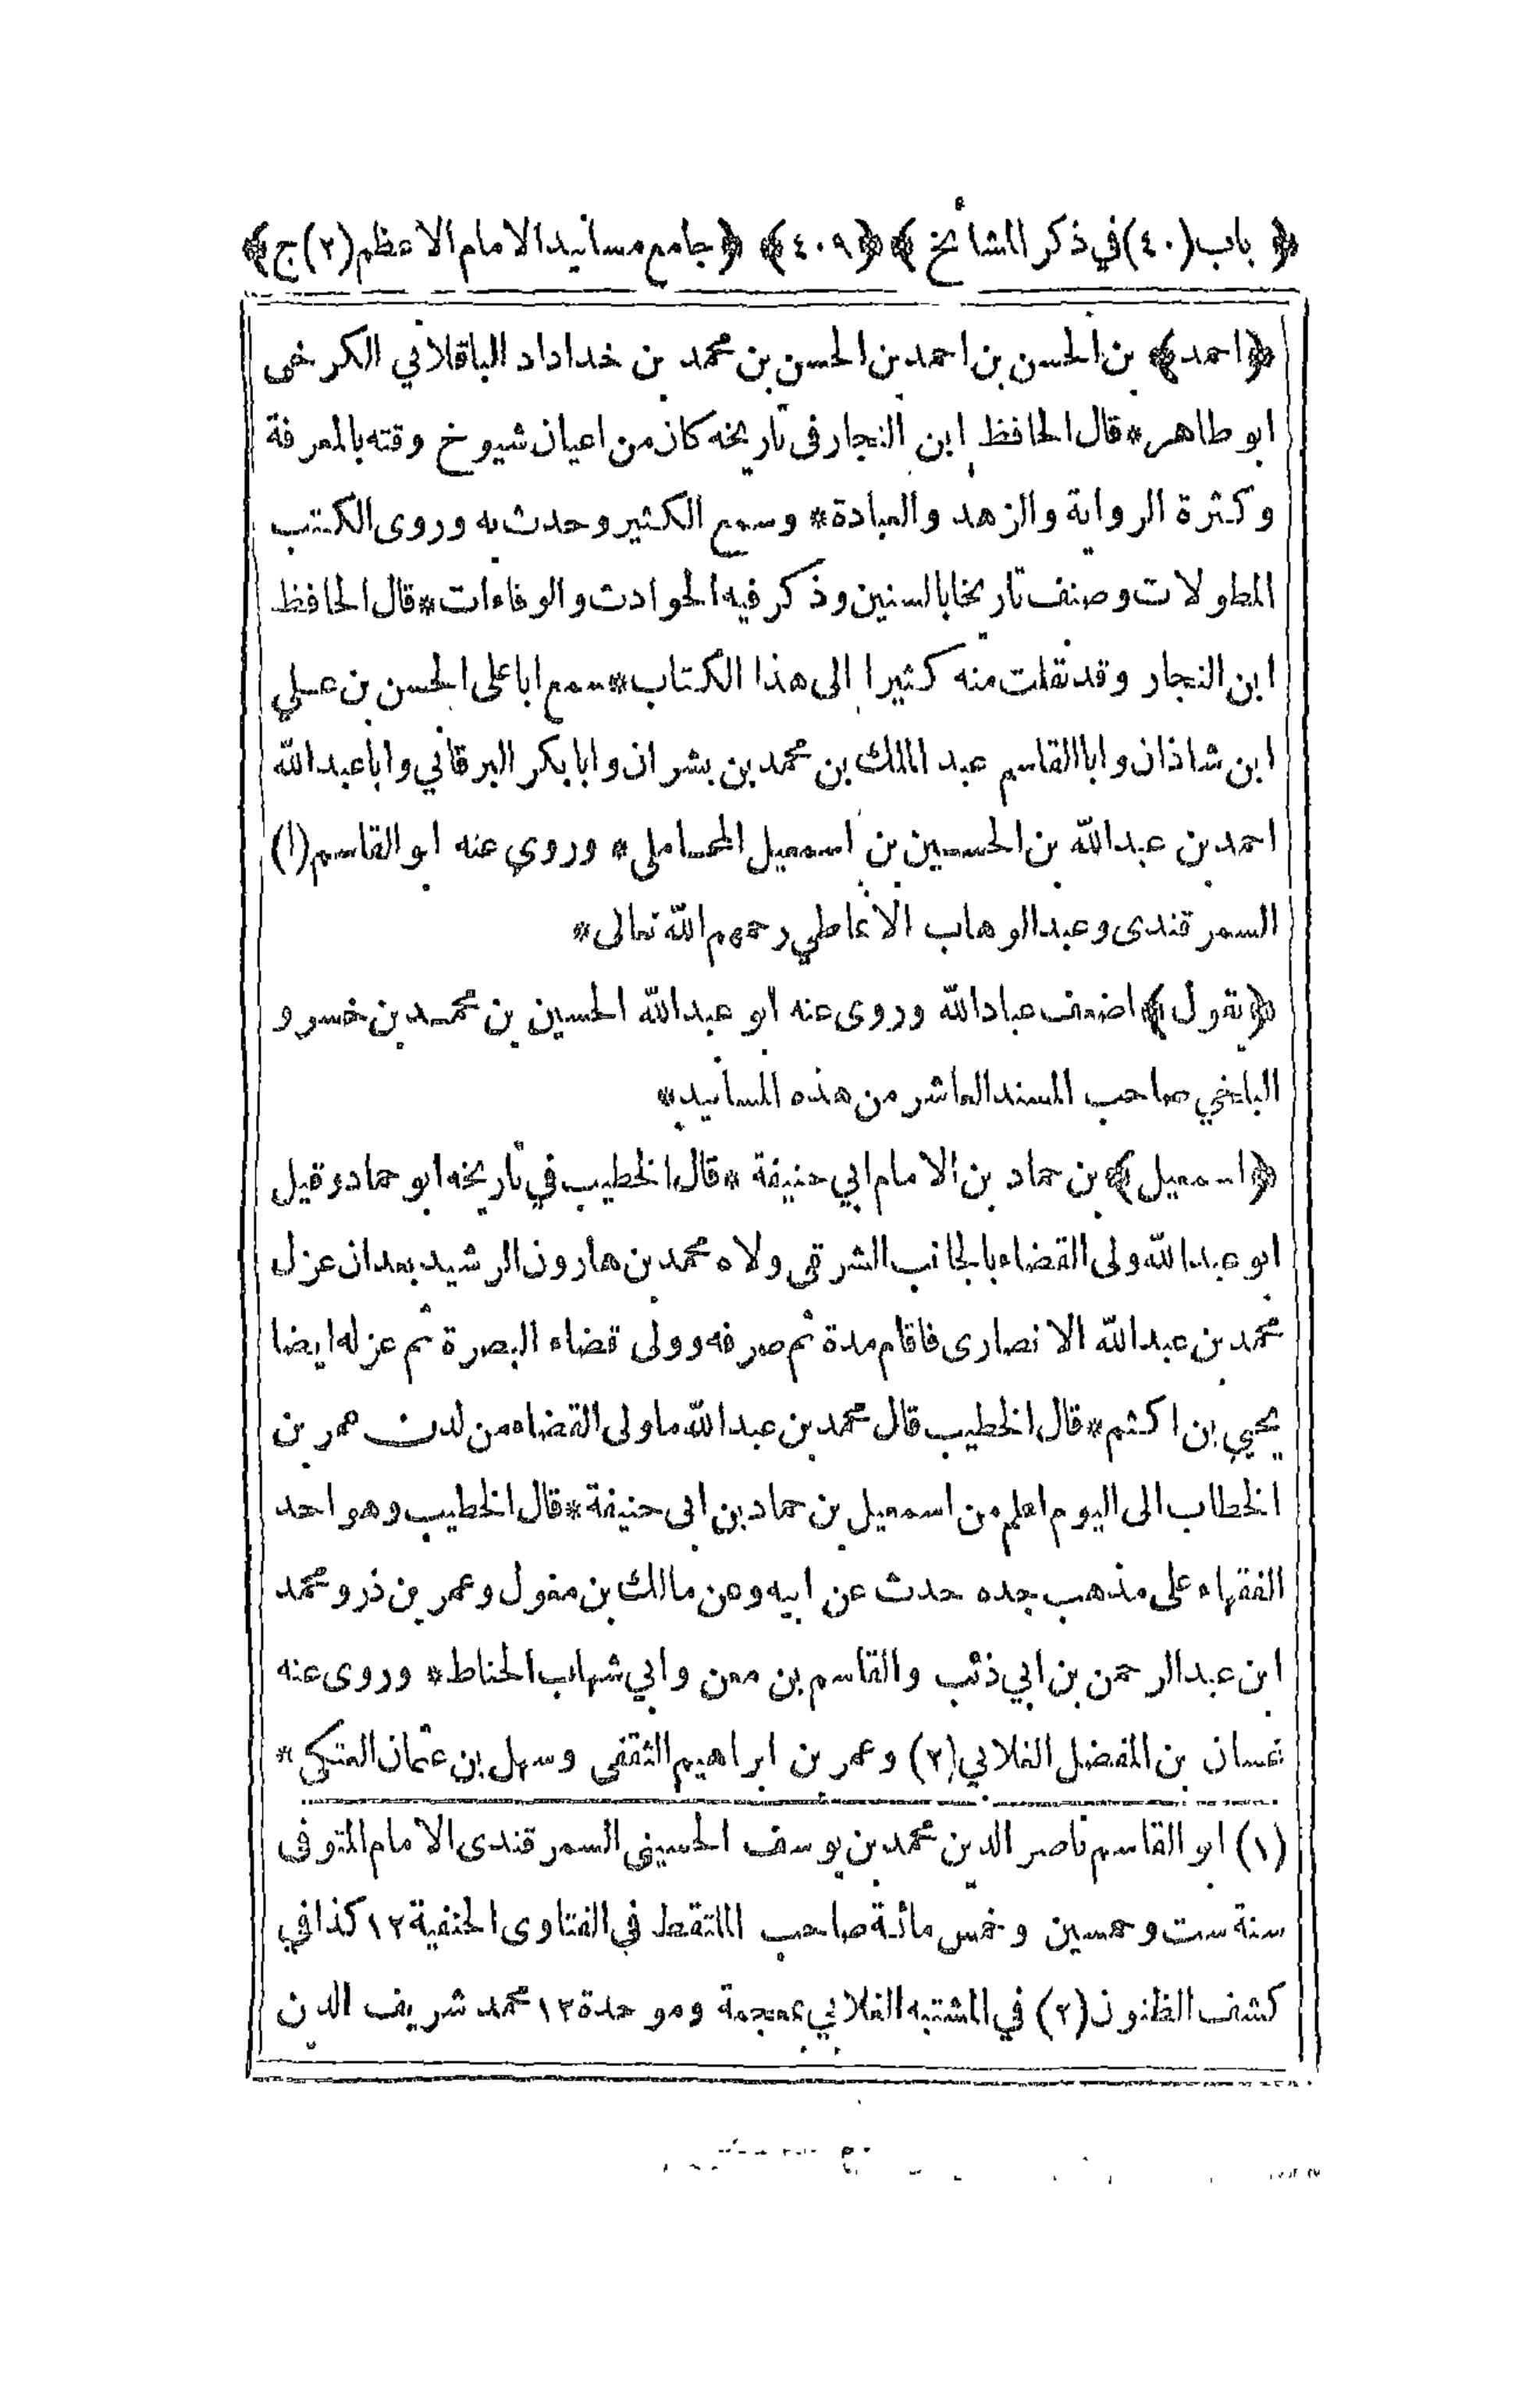 ﴿ باب (٤٠) في ذكر المشائخ ﴾ ﴿ ٤٠٩ ﴾ ﴿ جامع مسانيد الامام الاعظم (٢) ج ﴾
﴿ احمد ﴾ بن الحسن بن احمد بن الحسن بن محمد بن خداداد الباقلاني الكرخى
ابو طاهر * قال الحافظ ابن النجار فى تاريخه كان من اعيان شيوخ وقته بالمعرفة
وكثرة الرواية والزهد والعبادة * وسمع الكثير وحدث به وروى الكتب
المطولات وصنف تاريخا بالسنين وذكر فيه الحوادث والوفاءات * قال الحافظ
ابن النجار وقد نقلت منه كثيرا الى هذا الكتاب * سمع ابا على الحسن بن علي
ابن شاذان وابا القاسم عبد الملك بن محمد بن بشران وابا بكر البرقاني وابا عبد الله
احمد بن عبد الله بن الحسين بن اسمعيل المحاملى * وروي عنه ابو القاسم (١)
السمرقندى وعبد الوهاب الانماطي رحمهم الله تعالى *
﴿ يقول ﴾ اضعف عباد الله وروى عنه ابو عبد الله الحسين بن محمد بن خسرو
البلخي صاحب المسند العاشر من هذه المسانيد *
﴿ اسمعيل ﴾ بن حماد بن الامام ابي حنيفة * قال الخطيب في تاريخه ابو حماد وقيل
ابو عبد الله ولى القضاء بالجانب الشرقى ولاه محمد بن هارون الرشيد بعد ان عزل
محمد بن عبد الله الانصارى فاقام مدة ثم صرفه وولى قضاء البصرة ثم عزله ايضا
يحيي بن اكثم * قال الخطيب قال محمد بن عبد الله ما ولى القضاء من لدن عمر بن
الخطاب الى اليوم اعلم من اسمعيل بن حماد بن ابى حنيفة * قال الخطيب وهو احد
الفقهاء على مذهب جده حدث عن ابيه وعن مالك بن مغول وعمر بن ذر ومحمد
ابن عبد الرحمن بن ابي ذئب والقاسم بن معن وابي شهاب الحناط * وروى عنه
غسان بن المفضل الغلابي (٢) وعمر بن ابراهيم الثقفى وسهل بن عثمان العتكي *
(١) ابو القاسم ناصر الدين محمد بن يوسف الحسينى السمرقندى الامام المتوفى
سنة ست وخمسين وخمس مائة صاحب الملتقط في الفتاوى الحنفية ١٢ كذا في
كشف الظنون (٢) في المشتبه الغلابي بمعجمة وموحدة ١٢ محمد شريف الدين